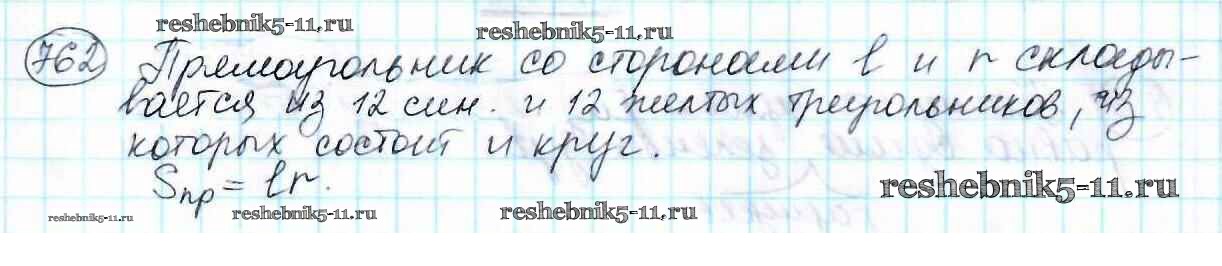 reshebnik5-11.ru reshebnik5-11.ru
762 Прямоугольник со сторонами l и r склады-
вается из 12 син. и 12 желтых треугольников, из
которых состоит и круг.
Sпр = lr.
reshebnik5-11.ru
reshebnik5-11.ru reshebnik5-11.ru reshebnik5-11.ru